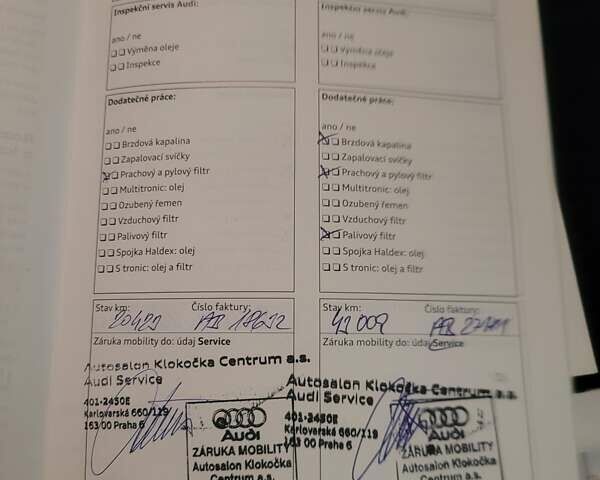 Inspekční servis Audi:
ano / ne
Výměna oleje
Inspekce
Dodatečné práce:
ano / ne
Brzdová kapalina
Zapalovací svíčky
Prachový a pylový filtr
Multitronic: olej
Ozubený řemen
Vzduchový filtr
Palivový filtr
Spojka Haldex: olej
S tronic: olej a filtr
Stav km: Číslo faktury:
20429
Záruka mobility do: údaj Service
Autosalon Klokočka Centrum a.s.
Audi Service
401-2450E
Karlovarská 660/119
163 00 Praha 6
Audi
ZÁRUKA MOBILITY
Autosalon Klokočka
Centrum a.s.
Inspekční servis Audi:
ano / ne
Výměna oleje
Inspekce
Dodatečné práce:
ano / ne
Brzdová kapalina
Zapalovací svíčky
Prachový a pylový filtr
Multitronic: olej
Ozubený řemen
Vzduchový filtr
Palivový filtr
Spojka Haldex: olej
S tronic: olej a filtr
Stav km: Číslo faktury:
41 009
Záruka mobility do: údaj Service
Autosalon Klokočka Centrum a.s.
Audi Service
401-2450E
Karlovarská 660/119
163 00 Praha 6
Audi
ZÁRUKA MOBILITY
Autosalon Klokočka
Centrum a.s.